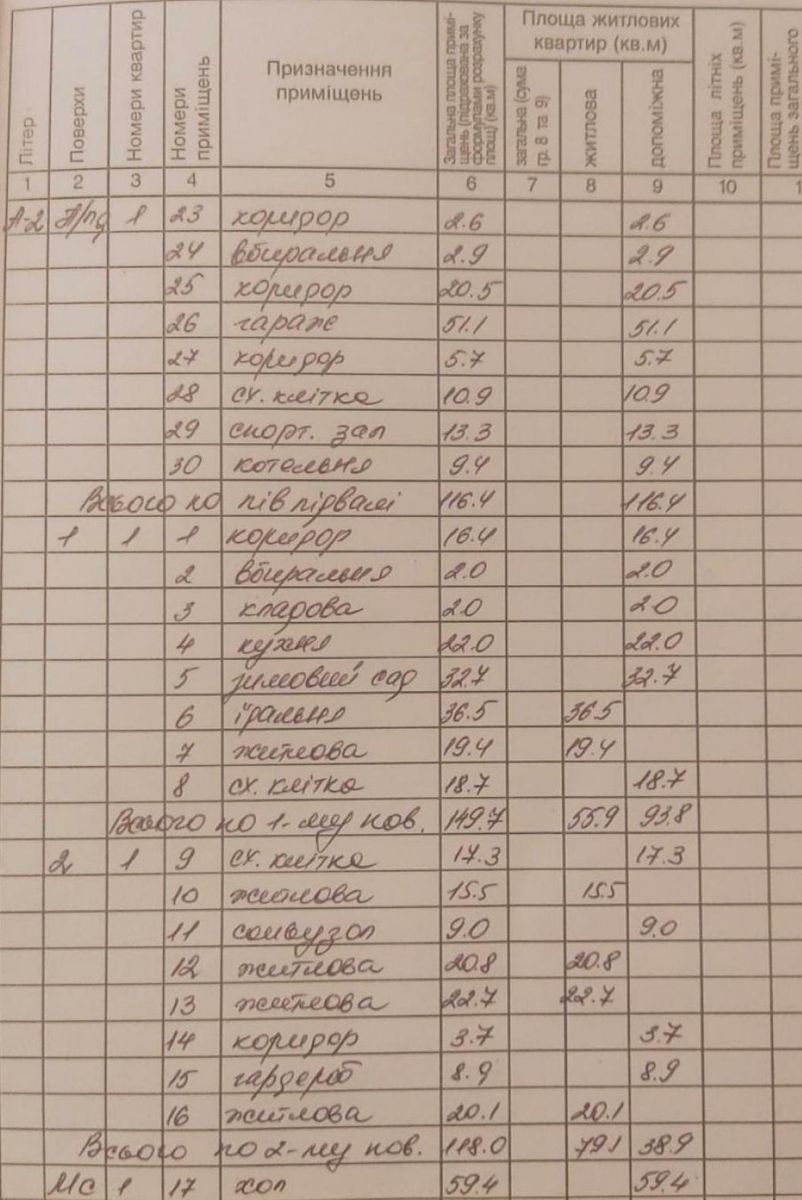 Літер
Поверхи
Номери квартир
Номери приміщень
Призначення приміщень
Загальна площа приміщень (підрахована за формулами розрахунку площ) (кв.м)
Площа житлових квартир (кв.м)
загальна (сума гр. 8 та 9)
житлова
допоміжна
Площа літніх приміщень (кв.м)
Площа примі-
щень загального
1 2 3 4 5 6 7 8 9 10 1
А-2 П/пд 1 23 коридор 2.6 2.6
24 вбиральня 2.9 2.9
25 коридор 20.5 20.5
26 гараж 51.1 51.1
27 коридор 5.7 5.7
28 сх. клітка 10.9 10.9
29 спорт. зал 13.3 13.3
30 котельня 9.4 9.4
Всього по півпідвалі 116.4 116.4
1 1 1 коридор 16.4 16.4
2 вбиральня 2.0 2.0
3 кладова 2.0 2.0
4 кухня 22.0 22.0
5 зимовий сад 32.7 32.7
6 їдальня 36.5 36.5
7 житлова 19.4 19.4
8 сх. клітка 18.7 18.7
Всього по 1-му пов. 149.7 55.9 93.8
2 1 9 сх. клітка 17.3 17.3
10 житлова 15.5 15.5
11 санвузол 9.0 9.0
12 житлова 20.8 20.8
13 житлова 22.7 22.7
14 коридор 3.7 3.7
15 гардероб 8.9 8.9
16 житлова 20.1 20.1
Всього по 2-му пов. 118.0 79.1 38.9
Мс 1 17 хол 59.4 59.4